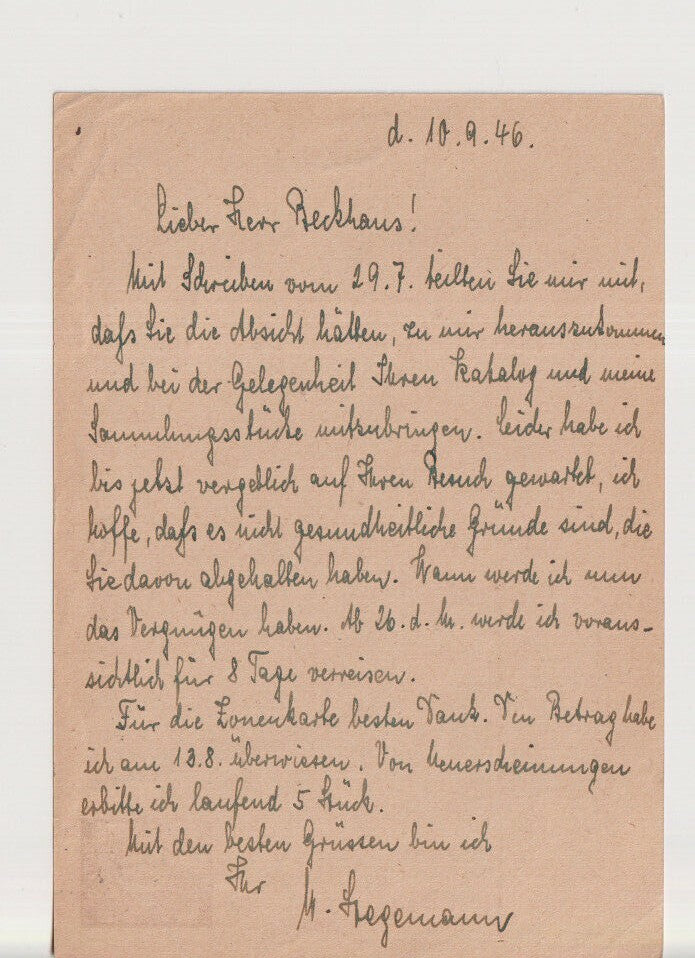 d. 10.9.46.
Lieber Herr Beckhaus!
Mit Schreiben vom 29.7. teilten Sie mir mit,
daß Sie die Absicht hätten, zu mir herauszukommen
und bei der Gelegenheit Ihren Katalog und meine
Sammlungsstücke mitzubringen. Leider habe ich
bis jetzt vergeblich auf Ihren Besuch gewartet, ich
hoffe, daß es nicht gesundheitliche Gründe sind, die
Sie davon abgehalten haben. Wann werde ich nun
das Vergnügen haben. Ab 26. d. M. werde ich voraus-
sichtlich für 8 Tage verreisen.
Für die Zonenkarte besten Dank. Den Betrag habe
ich am 13.8. überwiesen. Von Neuerscheinungen
erbitte ich laufend 5 Stück.
Mit den besten Grüssen bin ich
Ihr
M. Stegemann